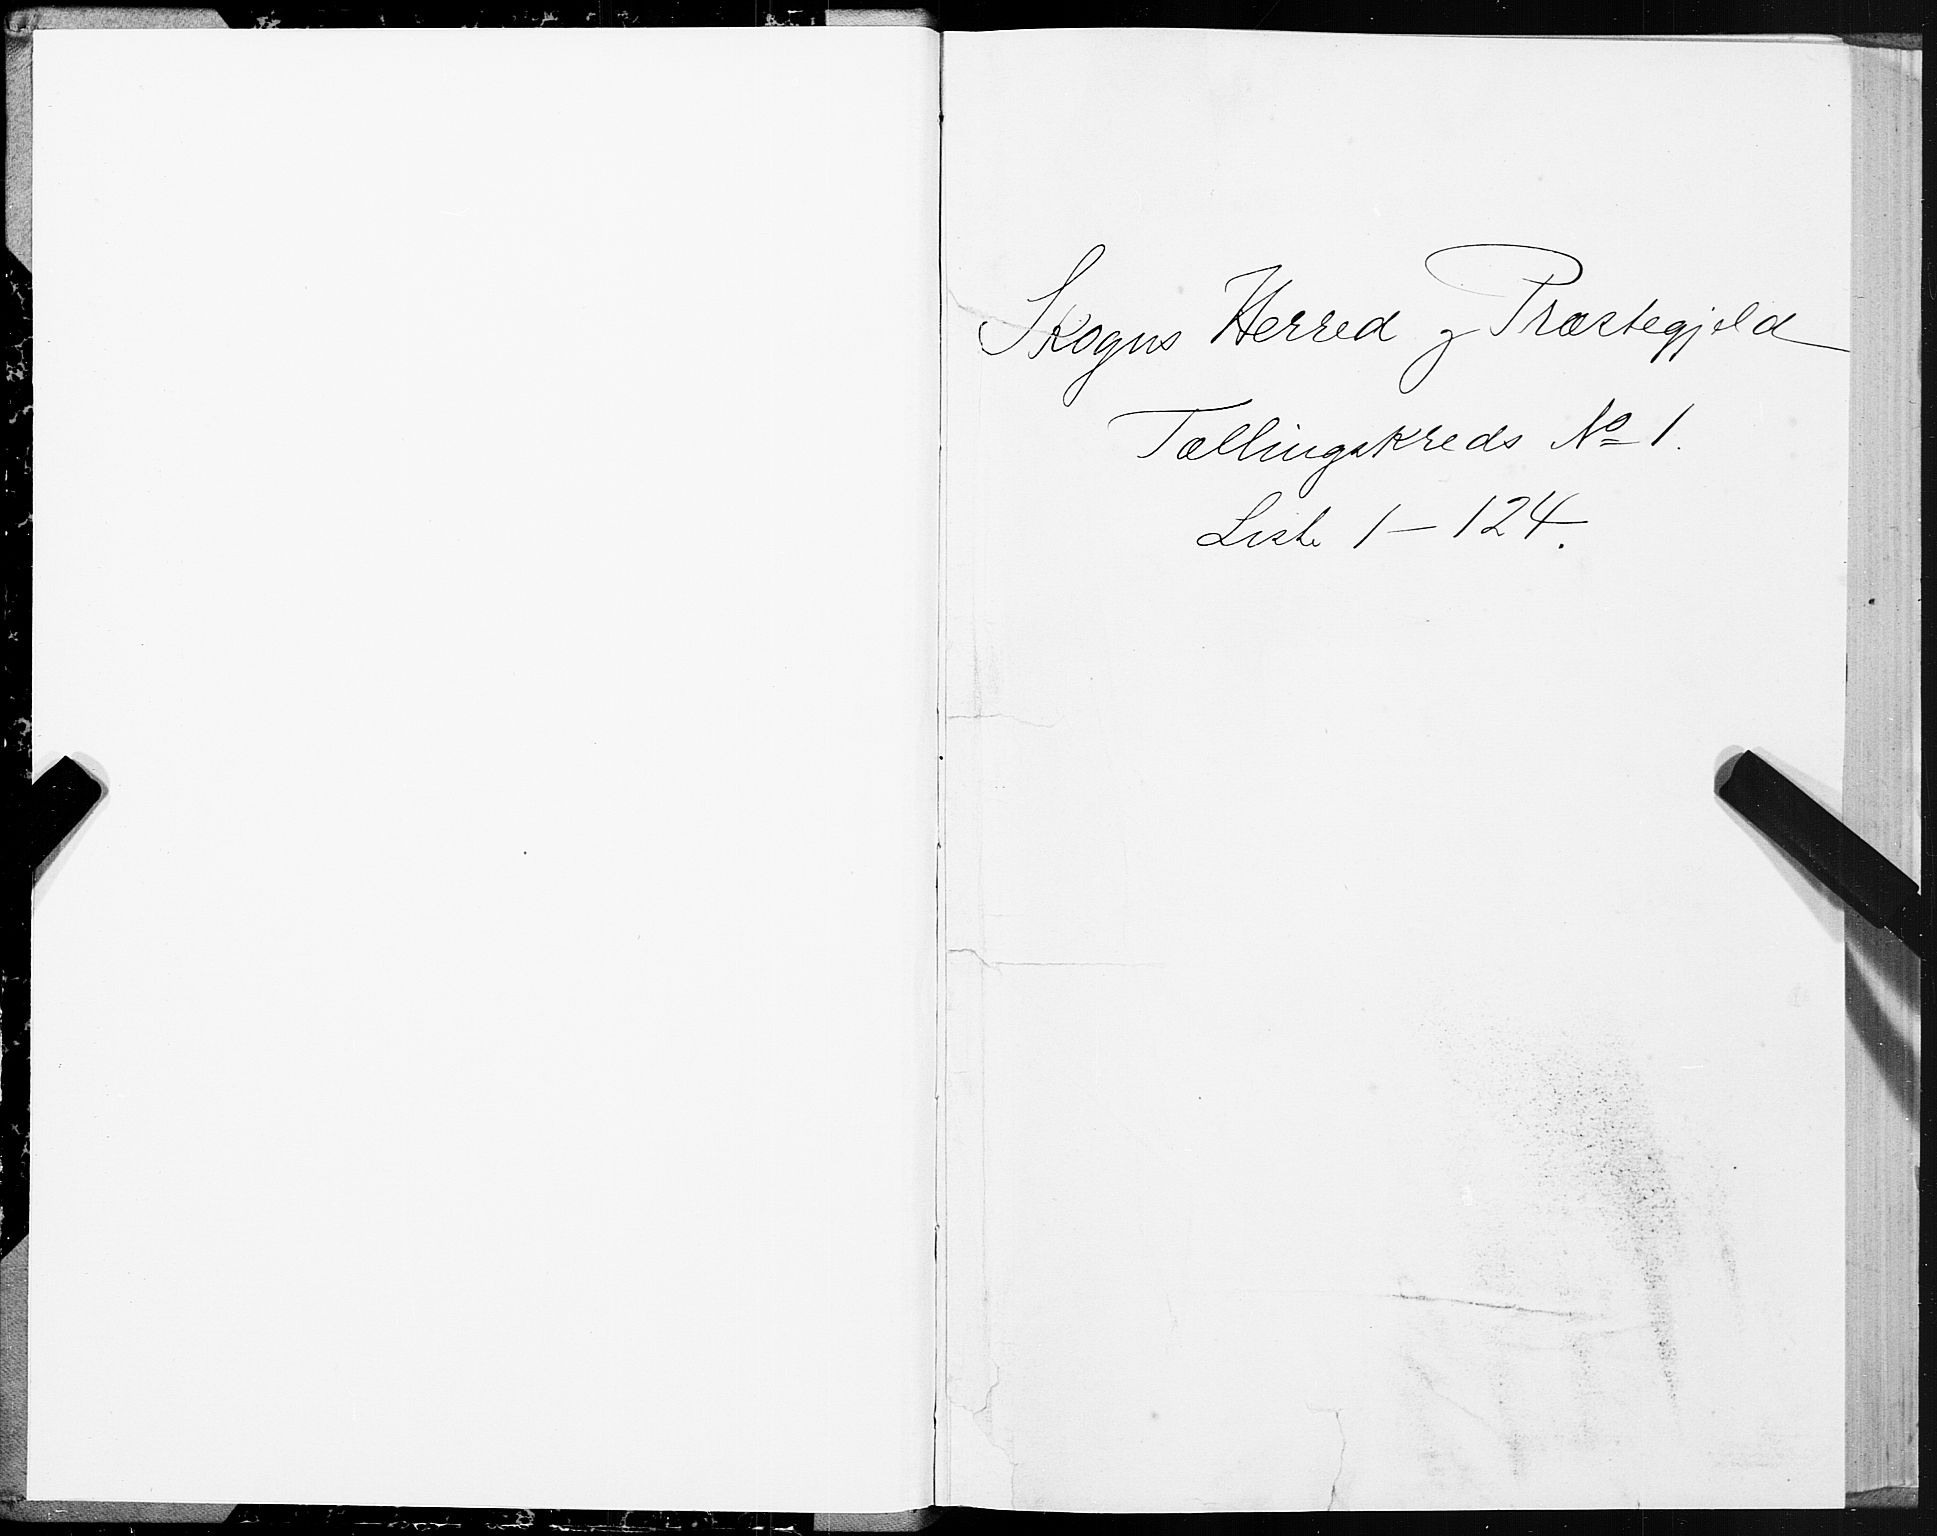 Skogns Herred og Præstegjeld
Tællingskreds No 1.
Liste 1-124.